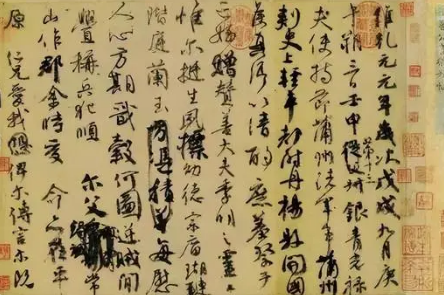 維乾元元年歲次戊戌九月庚
午朔三日壬申第十三從父銀青光祿
夫使持節蒲州諸軍事蒲州
刺史上輕車都尉丹楊縣開國
侯真卿以清酌庶羞祭于
亡姪贈贊善大夫季明之靈曰
惟爾挺生夙標幼德宗廟瑚璉
階庭蘭玉方憑積善每慰
人心方期戩穀何圖逆賊間
釁稱兵犯順 爾父 常
山作郡余時受 命亦在平
原 仁兄愛我俾爾傳言爾既